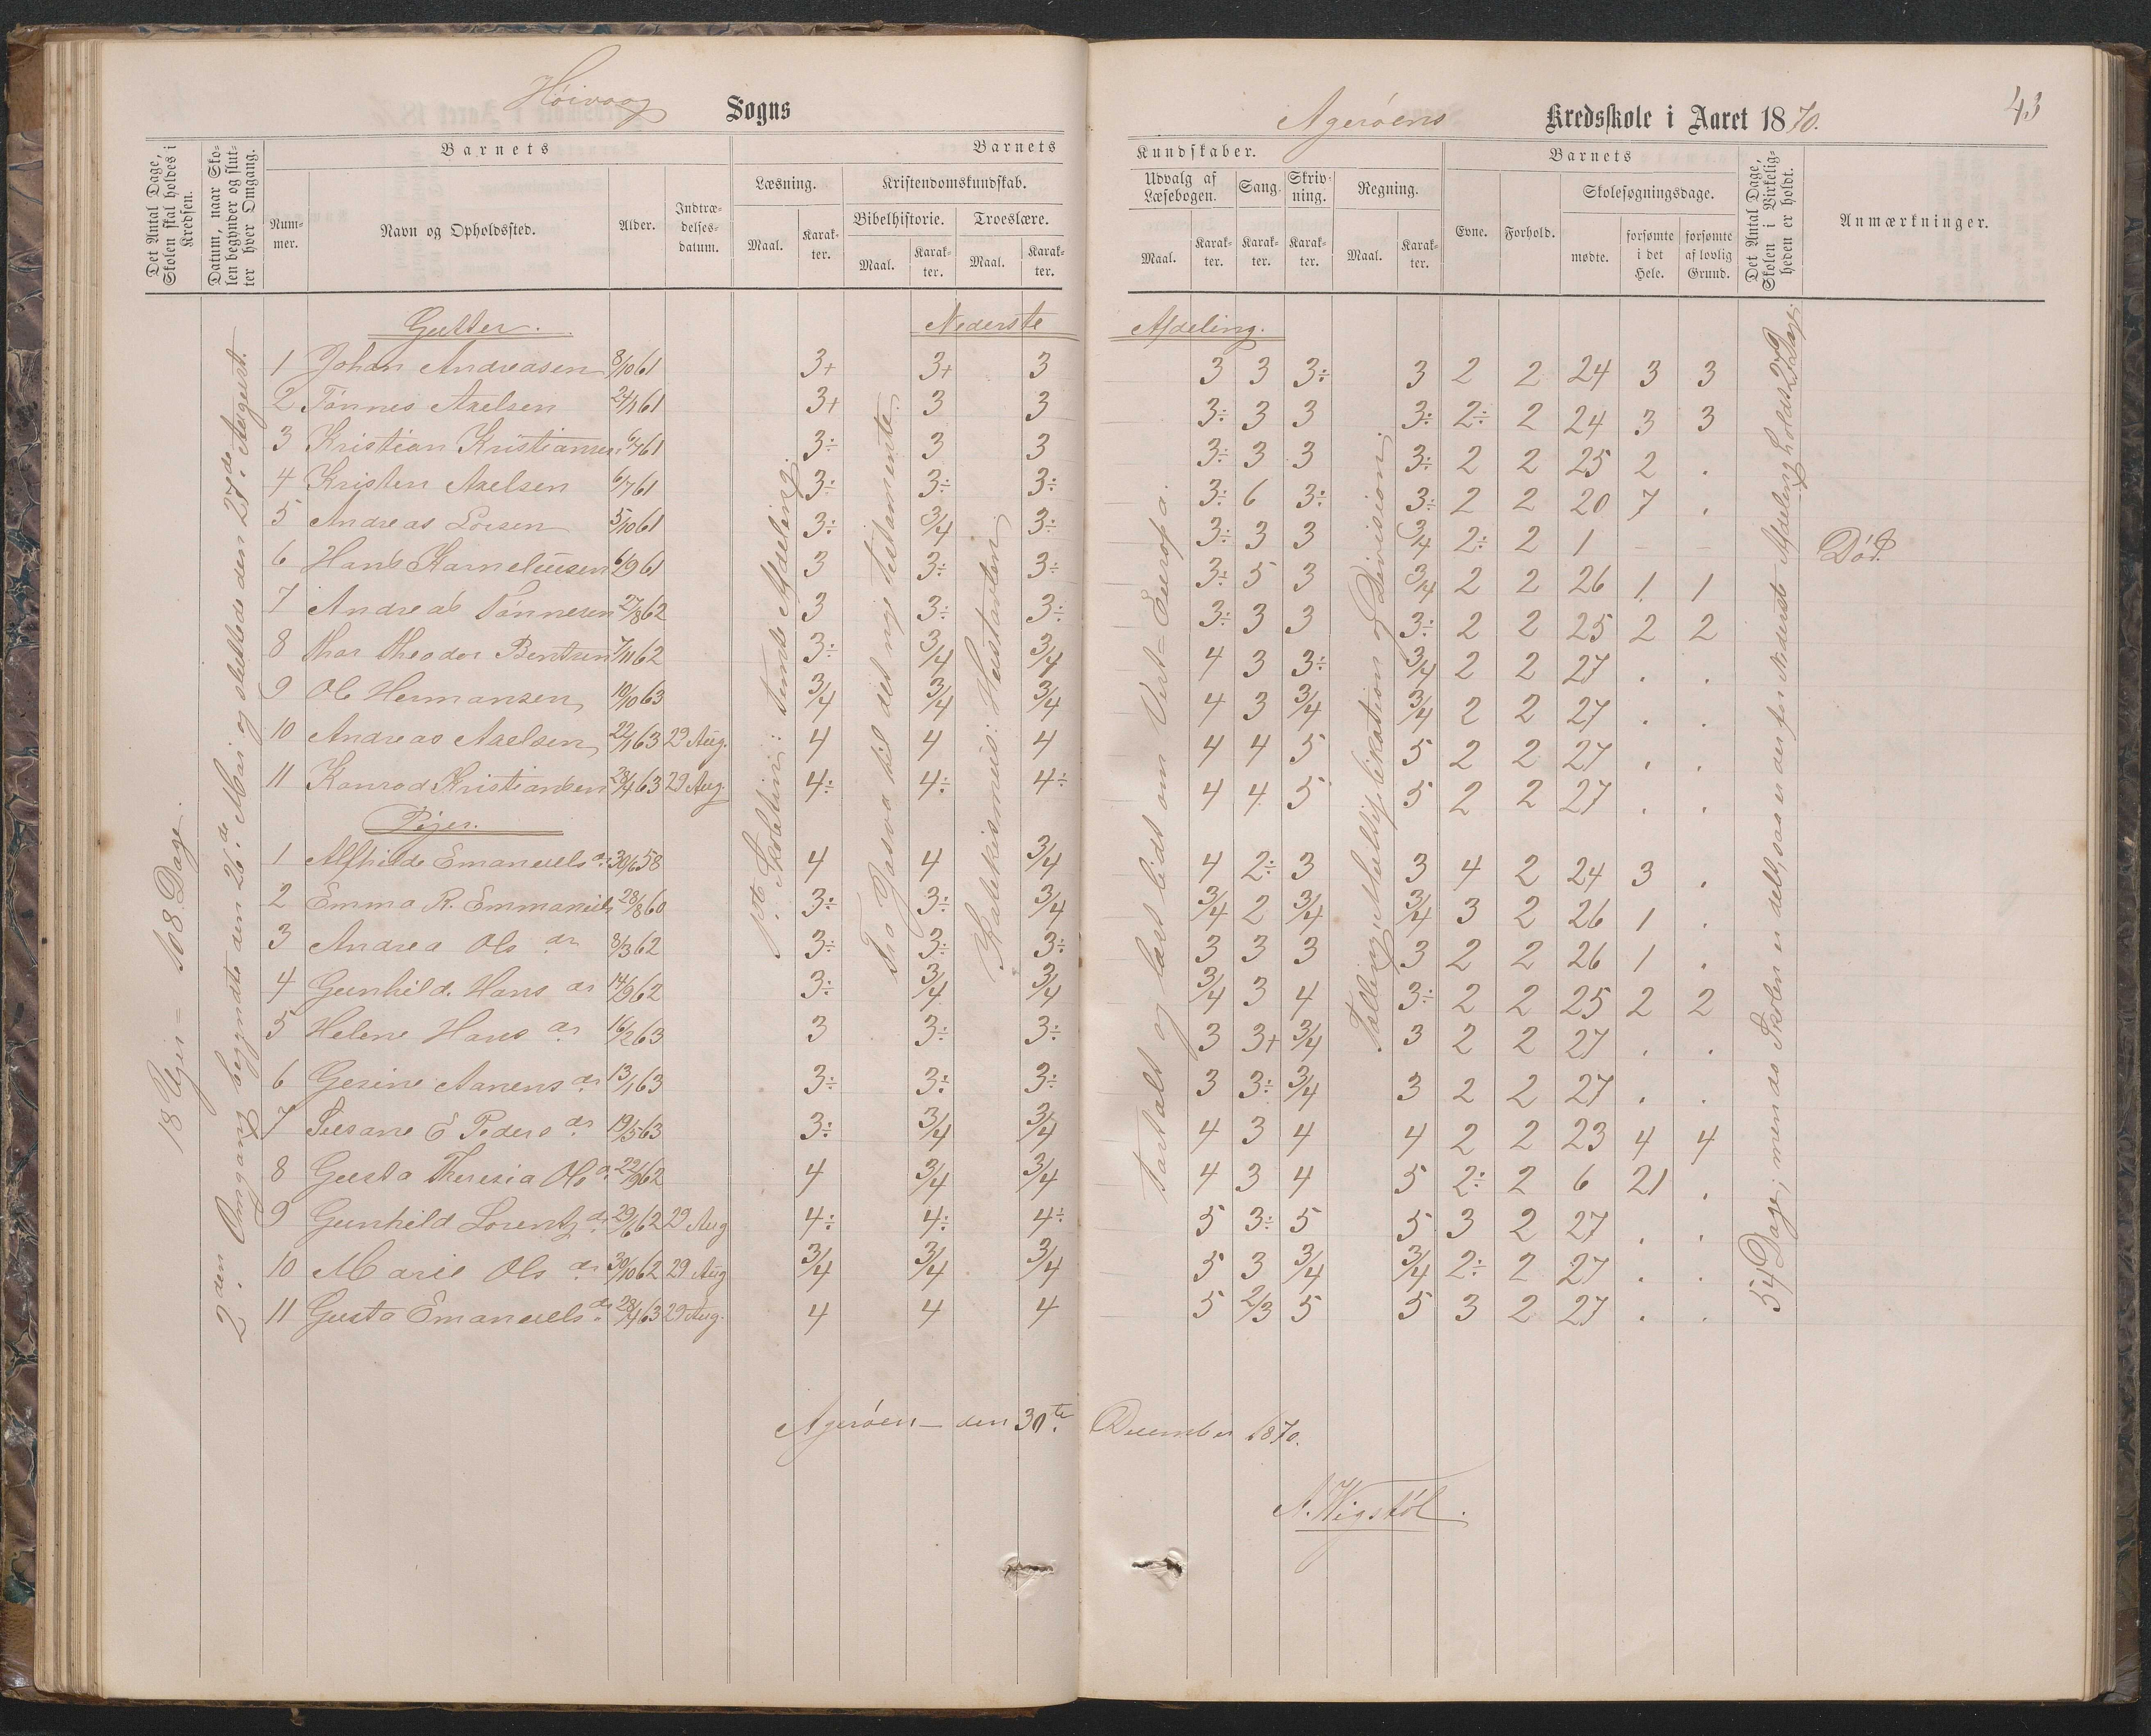 Høivaag Sogns
Agerøens Kredsskole i Aaret 1870.
43
Det Antal Dage, Skolen skal holdes i Kredsen.
Datum, naar Skolen begynder og slutter hver Omgang.
Barnets
Nummer.
Navn og Opholdssted.
Alder.
Indtrædelsesdatum.
Barnets
Læsning.
Maal.
Karakter.
Kristendomskundskab.
Bibelhistorie.
Maal.
Karakter.
Troeslære.
Maal.
Karakter.
Kundskaber.
Udvalg af Læsebogen.
Maal.
Karakter.
Sang.
Karakter.
Skrivning.
Karakter.
Regning.
Maal.
Karakter.
Barnets
Evne.
Forhold.
Skolesøgningsdage.
mødte.
forsømte i det Hele.
forsømte af lovlig Grund.
Det Antal Dage, Skolen i Virkeligheden er holdt.
Anmærkninger.
18 Uger = 108 Dage.
2den Omgang begyndte den 26de Mai og sluttede den 27de August.
Gutter. Nederste Afdeling.
1 Johan Andreasen 8/10 61 3+ 3+ 3 3 3 3÷ 3 2 2 24 3 3
2 Tønnes Axelsen 24/1 61 3+ 3 3 3÷ 3 3 3÷ 2÷ 2 24 3 3
3 Kristian Kristiansen 6/7 61 3÷ 3 3 3÷ 3 3 3÷ 2 2 25 2 .
4 Kristen Axelsen 6/7 61 3÷ 3÷ 3÷ 3÷ 6 3÷ 3÷ 2 2 20 7 .
5 Andreas Lorsen 5/10 61 3÷ 3/4 3÷ 3÷ 3 3 3/4 2÷ 2 1 – – Død.
6 Hans Karneliusen 6/9 61 3 3÷ 3÷ 3÷ 5 3 3/4 2 2 26 1 1
7 Andreas Tønnesen 27/8 62 3 3÷ 3÷ 3÷ 3 3 3÷ 2 2 25 2 2
8 Thor Theodor Bentsen 7/11 62 3÷ 3/4 3/4 4 3 3÷ 3/4 2 2 27 . .
9 Ole Hermansen 19/10 63 3/4 3/4 3/4 4 3 3/4 3/4 2 2 27 . .
10 Andreas Axelsen 22/1 63 29 Aug. 4 4 4 4 4 5 5 2 2 27 . .
11 Konrad Kristiansen 28/4 63 29 Aug. 4÷ 4÷ 4÷ 4 4 5 5 2 2 27 . .
Piger.
1 Alfhilde Emanuels d. 30/6 58 4 4 3/4 4 2÷ 3 3 4 2 24 3 .
2 Emma R. Emmanuels 28/8 60 3÷ 3÷ 3/4 3/4 2 3/4 3/4 3 2 26 1 .
3 Andrea Ols dr 8/3 62 3÷ 3÷ 3÷ 3 3 3 3 2 2 26 1 .
4 Gunhild Hans dr 14/9 62 3÷ 3/4 3/4 3/4 3 4 3÷ 2 2 25 2 2
5 Helene Hans dr 16/2 63 3 3÷ 3÷ 3 3+ 3/4 3 2 2 27 . .
6 Gerine Aanens dr 13/1 63 3÷ 3÷ 3÷ 3 3÷ 3/4 3 2 2 27 . .
7 Susane E Peders dr 19/5 63 3÷ 3/4 3/4 4 3 4 4 2 2 23 4 4
8 Gusta Theresia Ols d. 22/9 62 4 3/4 3/4 4 3 4 5 2÷ 2 6 21 .
9 Gunhild Lorentz dr 29/6 62 29 Aug 4÷ 4÷ 4÷ 5 3÷ 5 5 3 2 27 . .
10 Marie Ols dr 30/10 62 29 Aug 3/4 3/4 3/4 5 3 3/4 3/4 2÷ 2 27 . .
11 Gusta Emanuels dr 28/4 63 29 Aug. 4 4 4 5 2/3 5 5 3 2 27 . .
1ste Skoletrin: Femte Afdeling.
Fra Josva til det nye Testamente.
Katekismus: Hustavlen
Fortalt og læst lidt om Vest=Europa.
Tællling, Multiplikation og Division.
54 Dage; men da Skolen er delt, saa er der for Nederste Afdeling holdt 27 Dage.
Agerøen – den 30te December 1870.
A. Wigstøl.